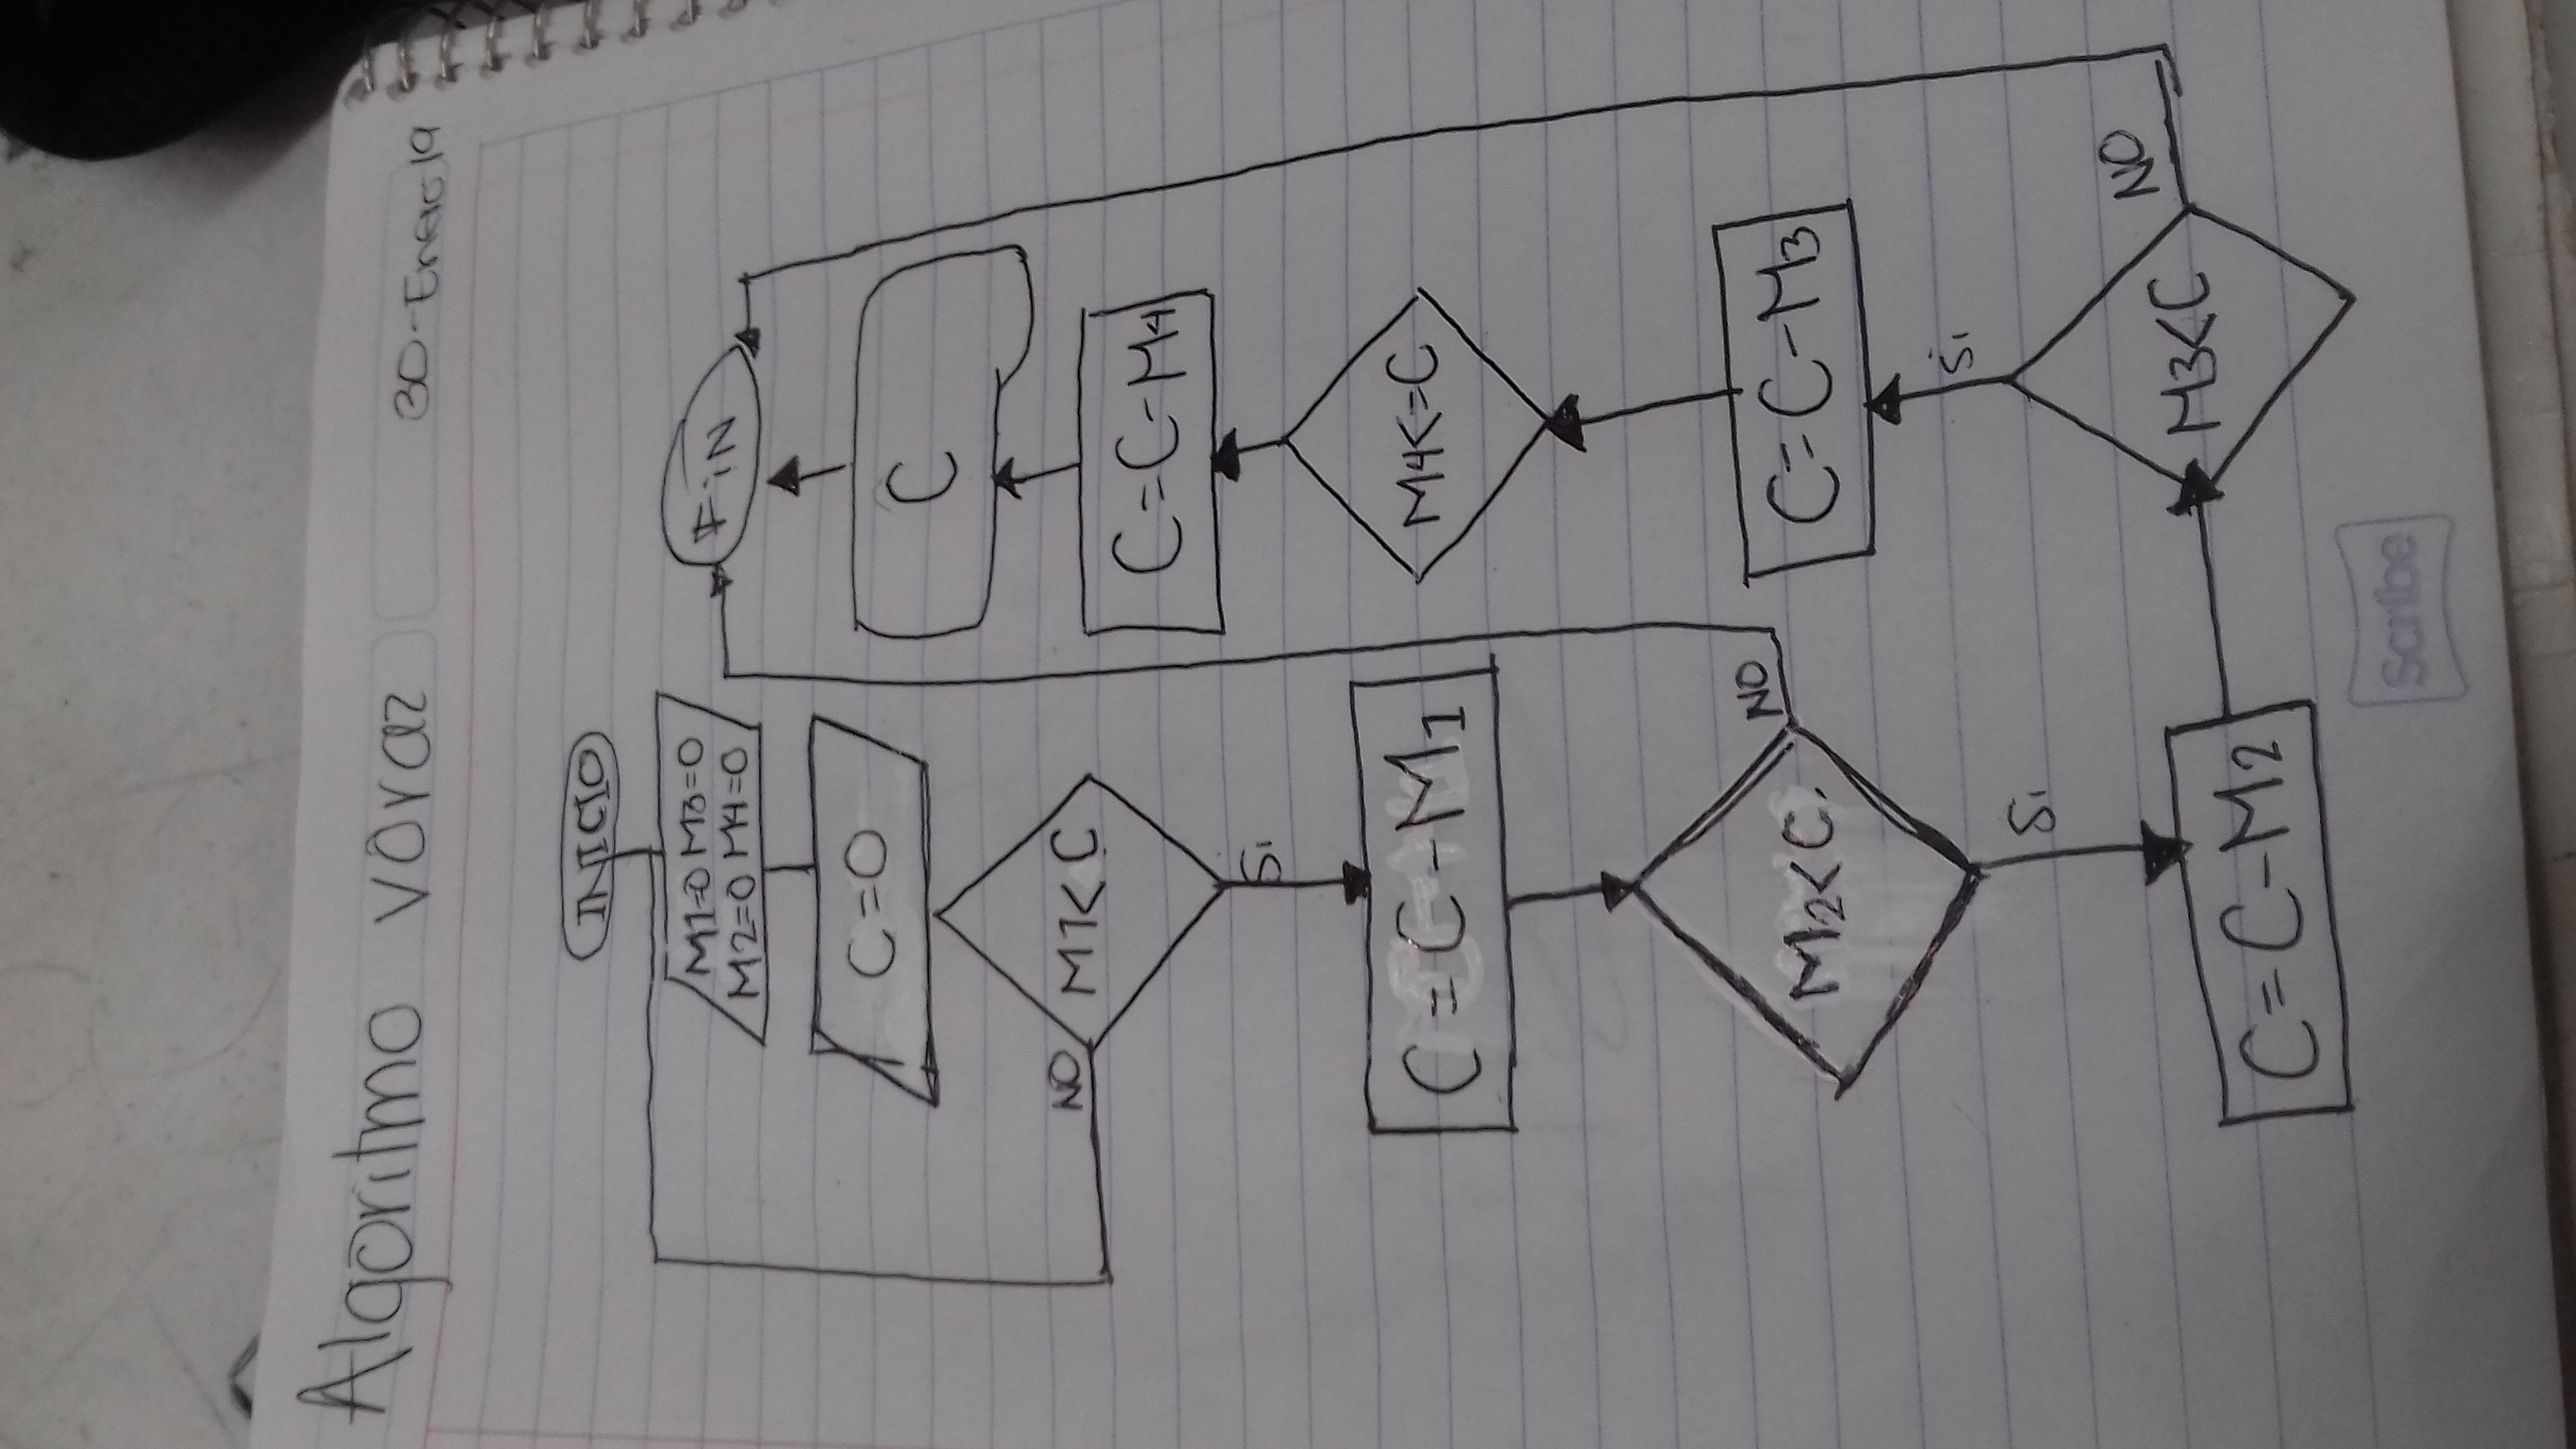 Algoritmo voraz
30-Enero 19
INICIO
M1=0 M3=0
M2=0 M4=0
C=0
M1<C
NO
Si
C=C-M1
M2<C.
NO
Si
C=C-M2
M3<C
NO
Si
C=C-M3
M4<=C
C=C-M4
C
FiN
Scribe